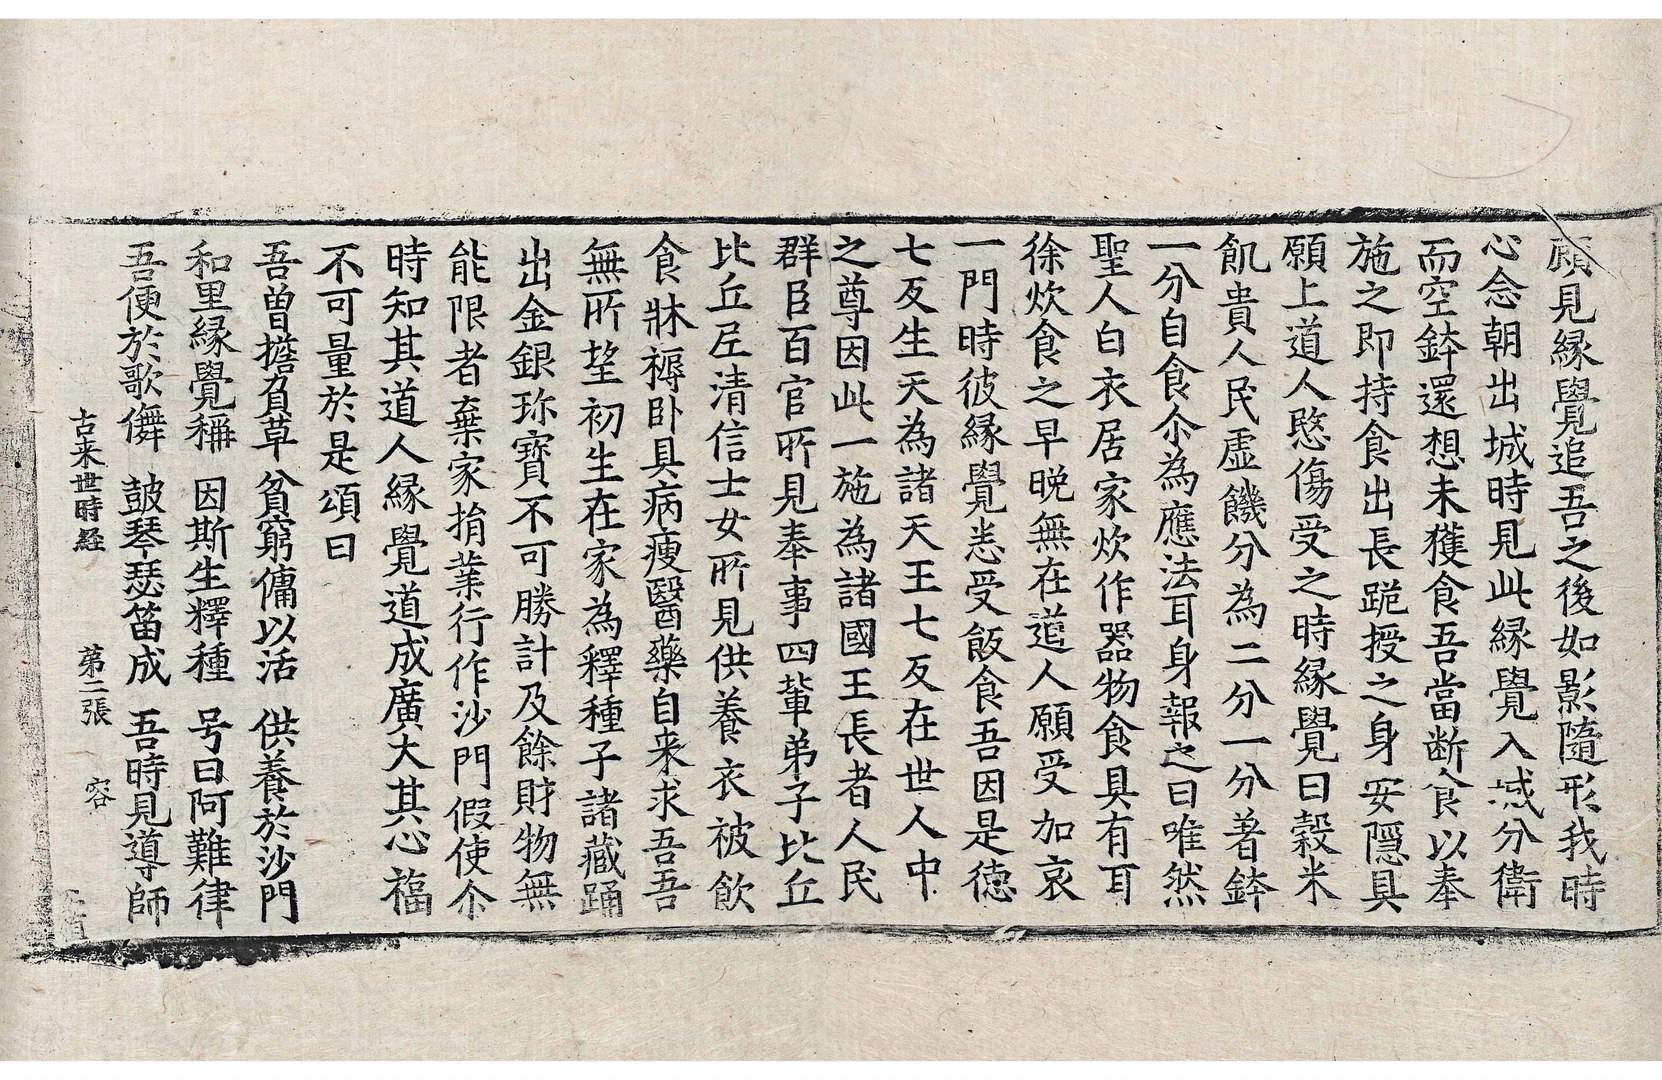 願見緣覺追吾之後如影隨形我時
心念朝出城時見此緣覺入城分衛
而空鉢還想未獲食吾當断食以奉
施之即持食出長跪授之身安隱具
願上道人愍傷受之時緣覺曰穀米
飢貴人民虛饑分為二分一分著鉢
一分自食尒為應法耳身報之曰唯然
聖人白衣居家炊作器物食具有耳
徐炊食之早晚無在道人願受加哀
一門時彼緣覺恙受飯食吾因是德
七反生天為諸天王七反在世人中
之尊因此一施為諸國王長者人民
群臣百官所見奉事四輩弟子比丘
比丘尼清信士女所見供養衣被飲
食牀褥卧具病瘦醫藥自来求吾吾
無所望初生在家為釋種子諸藏踊
出金銀珎寶不可勝計及餘財物無
能限者棄家捐業行作沙門假使尒
時知其道人緣覺道成廣大其心福
不可量於是頌曰
吾曾擔負草　貧窮傭以活　供養於沙門
和里緣覺稱　因斯生釋種　号曰阿難律
吾便於歌儛　皷琴瑟笛成　吾時見導師
古来世時経　第二張　容